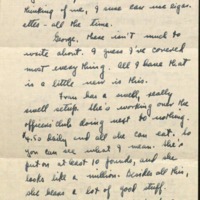 thinking of me, I sure can use cigar-
ettes - all the time.
George, there isn't much to
write about. I guess I've covered
most everything. All I have that
is a little new is this.
Irma has a swell, really
swell setup. She's working only the
officers' club doing next to nothing.
4.50 daily and all she can eat. So
you can see what I mean. She's
put on at least 10 pounds, and she
looks like a million. Besides all this,
she hears a lot of good stuff.